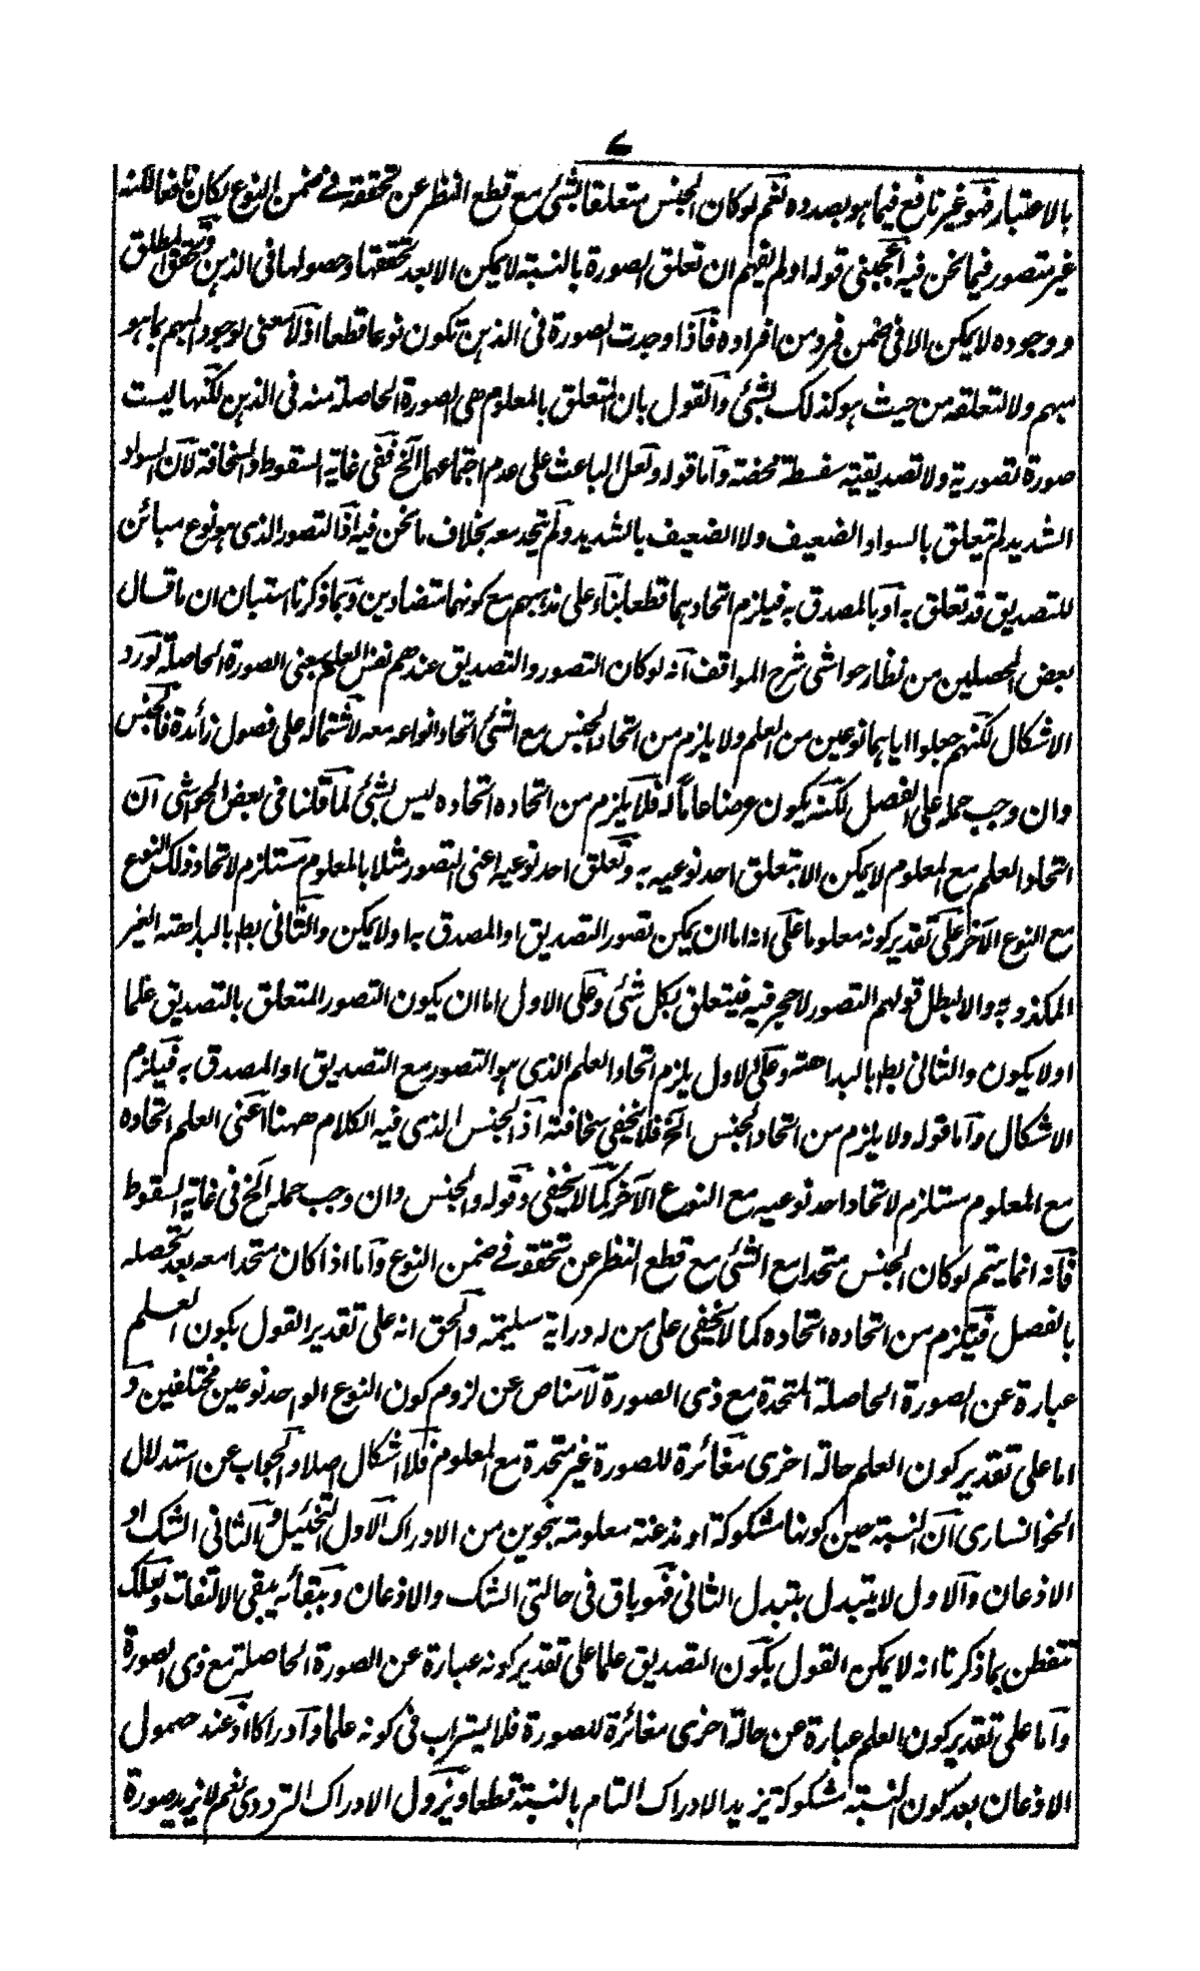 ٧
بالاعتبار فهو غير نافع فيما هو بصدده نعم لو كان الجنس متعلقا بالشئ مع قطع النظر عن تحققه فى ضمن النوع لكان نافعا لكنه
غير متصور فيما نحن فيه اعجبنى قوله اولم يفهم ان تعلق الصورة بالنسبة لا يمكن الا بعد تحققها وحصولها فى الذهن وتحقق المطلق
ووجوده لا يمكن الا فى ضمن فرد من افراده فاذا وجدت الصورة فى الذهن تكون نوعا قطعا اذ لا معنى لوجود المبهم بما هو
مبهم ولا لتعلقه من حيث هو كذلك بشئ والقول بان المتعلق بالمعلوم هى الصورة الحاصلة منه فى الذهن لكنها ليست
صورة تصورية ولا تصديقية سفسطة محضة واما قوله ولعل الباعث على عدم اجتماعهما الخ ففى غاية السقوط والسخافة لان السواد
الشديد لم يتعلق بالسواد الضعيف ولا الضعيف بالشديد ولم يتحد معه بخلاف ما نحن فيه اذ التصور الذى هو نوع مبائن
للتصديق قد تعلق به او بالمصدق به فيلزم اتحادهما قطعا بناء على مذهبهم مع كونهما متضادين وبما ذكرنا استبان ان ما قال
بعض المحصلين من نظار حواشى شرح المواقف انه لو كان التصور والتصديق عندهم نفس العلم بمعنى الصورة الحاصلة لورد
الاشكال لكنهم جعلوا اياهما نوعين من العلم ولا يلزم من اتحاد الجنس مع الشئ اتحاد انواعه معه لاشتماله على فصول زائدة فالجنس
وان وجب حمله على الفصل لكنه يكون عرضا عاما له فلا يلزم من اتحاده اتحاده ليس بشئ لما قلنا فى بعض الحواشى ان
اتحاد العلم مع المعلوم لا يمكن الا بتعلق احد نوعيه به وتعلق احد نوعيه اعنى التصور مثلا بالمعلوم مستلزم لاتحاد ذلك النوع
مع النوع الآخر على تقدير كونه معلوما على انه اما ان يمكن تصور التصديق او المصدق به او لا يمكن والثانى بط بالبداهة الغير
المكذوبة والا لبطل قولهم التصور لا حجر فيه فيتعلق بكل شئ وعلى الاول اما ان يكون التصور المتعلق بالتصديق علما
او لا يكون والثانى بط بالبداهة وعلى الاول يلزم اتحاد العلم الذى هو التصور مع التصديق او المصدق به فيلزم
الاشكال واما قوله ولا يلزم من اتحاد الجنس الخ فلا يخفى سخافته اذ الجنس الذى فيه الكلام ههنا اعنى العلم اتحاده
مع المعلوم مستلزم لاتحاد احد نوعيه مع النوع الآخر كما لا يخفى وقوله والجنس وان وجب حمله الخ فى غاية السقوط
فانه انما يتم لو كان الجنس متحدا مع الشئ مع قطع النظر عن تحققه فى ضمن النوع واما اذا كان متحدا معه بعد تحصله
بالفصل فيلزم من اتحاده اتحاده كما لا يخفى على من له دراية سليمة والحق انه على تقدير القول بكون العلم
عبارة عن الصورة الحاصلة المتحدة مع ذى الصورة لا مناص عن لزوم كون النوع الواحد نوعين مختلفين و
اما على تقدير كون العلم حالة اخرى مغائرة للصورة غير متحدة مع المعلوم فلا اشكال اصلا والجواب عن استدلال
الخوانسارى ان النسبة حين كونها مشكوكة او مذعنة معلومة بنحوين من الادراك الاول التخئيل والثانى الشك او
الاذعان والاول لا يتبدل بتبدل الثانى فهو باق فى حالتى الشك والاذعان وببقائه يبقى الالتفات ولعلك
تتفطن بما ذكرنا انه لا يمكن القول بكون التصديق علما على تقدير كونه عبارة عن الصورة الحاصلة مع ذى الصورة
واما على تقدير كون العلم عبارة عن حالة اخرى مغائرة للصورة فلا يستراب فى كونه علما وادراكا اذ عند حصول
الاذعان بعد كون النسبة مشكوكة تزيد الادراك التام بالنسبة قطعا ويزول الادراك الترددى نعم لا يزيد صورة